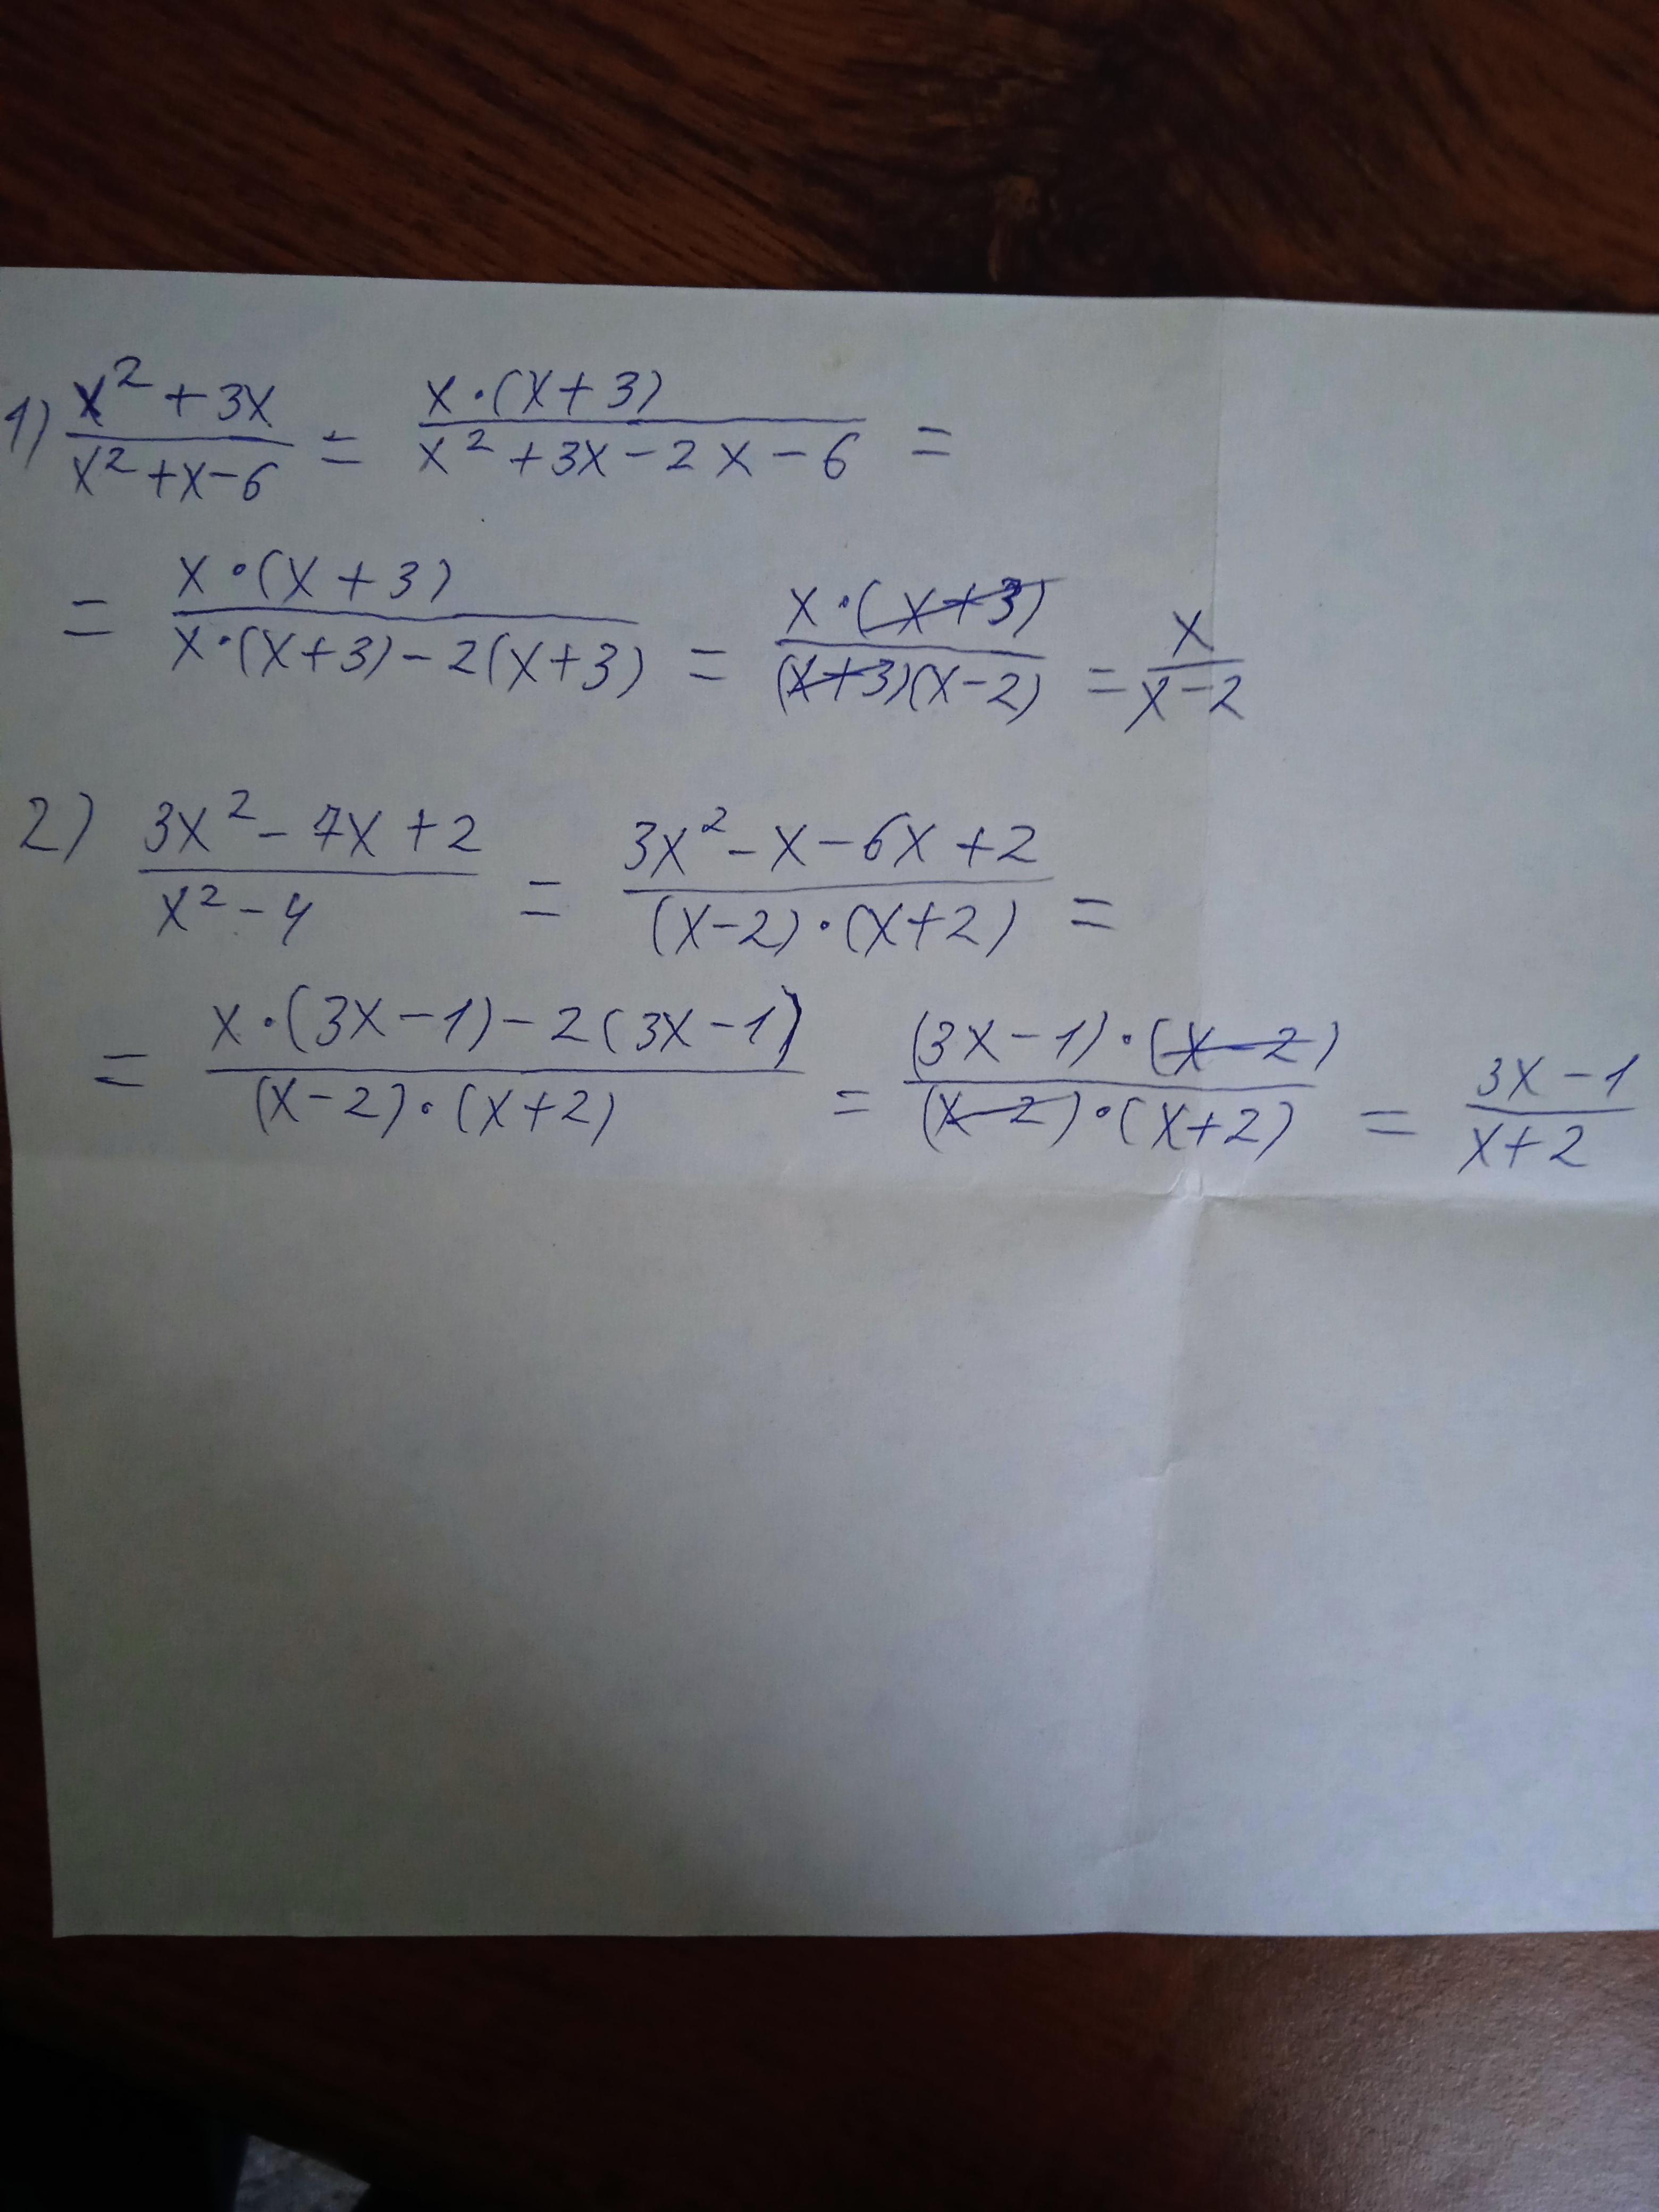 1) \frac{x^2+3x}{x^2+x-6} = \frac{x·(x+3)}{x^2+3x-2x-6} =
= \frac{x·(x+3)}{x·(x+3)-2(x+3)} = \frac{x·(x+3)}{(x+3)(x-2)} = \frac{x}{x-2}
2) \frac{3x^2-7x+2}{x^2-4} = \frac{3x^2-x-6x+2}{(x-2)·(x+2)} =
= \frac{x·(3x-1)-2(3x-1)}{(x-2)·(x+2)} = \frac{(3x-1)·(x-2)}{(x-2)·(x+2)} = \frac{3x-1}{x+2}